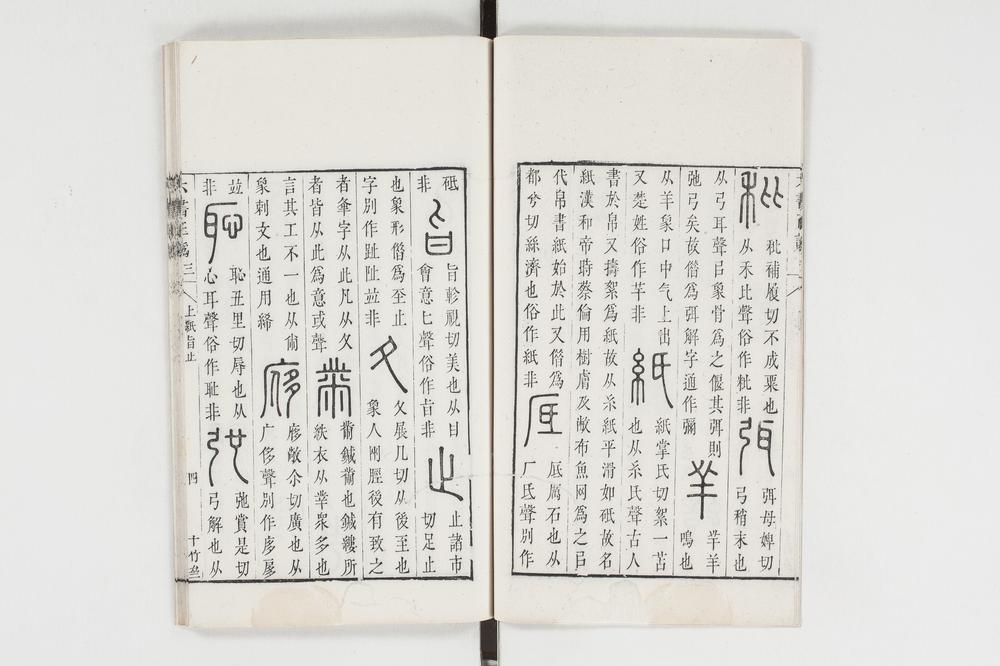 秕
秕補履切不成粟也
从禾比聲俗作粃非
弭
弭母婢切
弓稍末也
从弓耳聲㠯象骨爲之偃其弭則
弛弓矣故僭爲弭解字通作彌
羋
羋羊
鳴也
从羊象口中气上出
又楚姓俗作芊非
紙
紙掌氏切絮一苫
也从糸氏聲古人
書於帛又擣絮爲紙故从糸紙平滑如砥故名
紙漢和帝時蔡倫用樹膚及敝布魚网爲之㠯
代帛書紙始於此又僭爲
都兮切絲濟也俗作紙非
厎
厎厲石也从
厂氐聲別作
砥
非
旨
旨軫視切美也从甘
會意匕聲俗作㫖非
止
止諸市
切足止
也象形僭爲至止
字別作趾阯竝非
夂
夂展几切从後至也
象人兩脛後有致之
者夆字从此凡从夂
者皆从此爲意或聲
黹
黹鍼黹也鍼縷所
紩衣从丵衆多也
言其工不一也从㡀
象刺文也通用絺
㢋
㢋敞尒切廣也从
广侈聲別作
竝
非
恥
恥丑里切辱也从
心耳聲俗作耻非
弛
弛賞是切
弓解也从
六書正譌三
上紙旨止
四
十竹齋